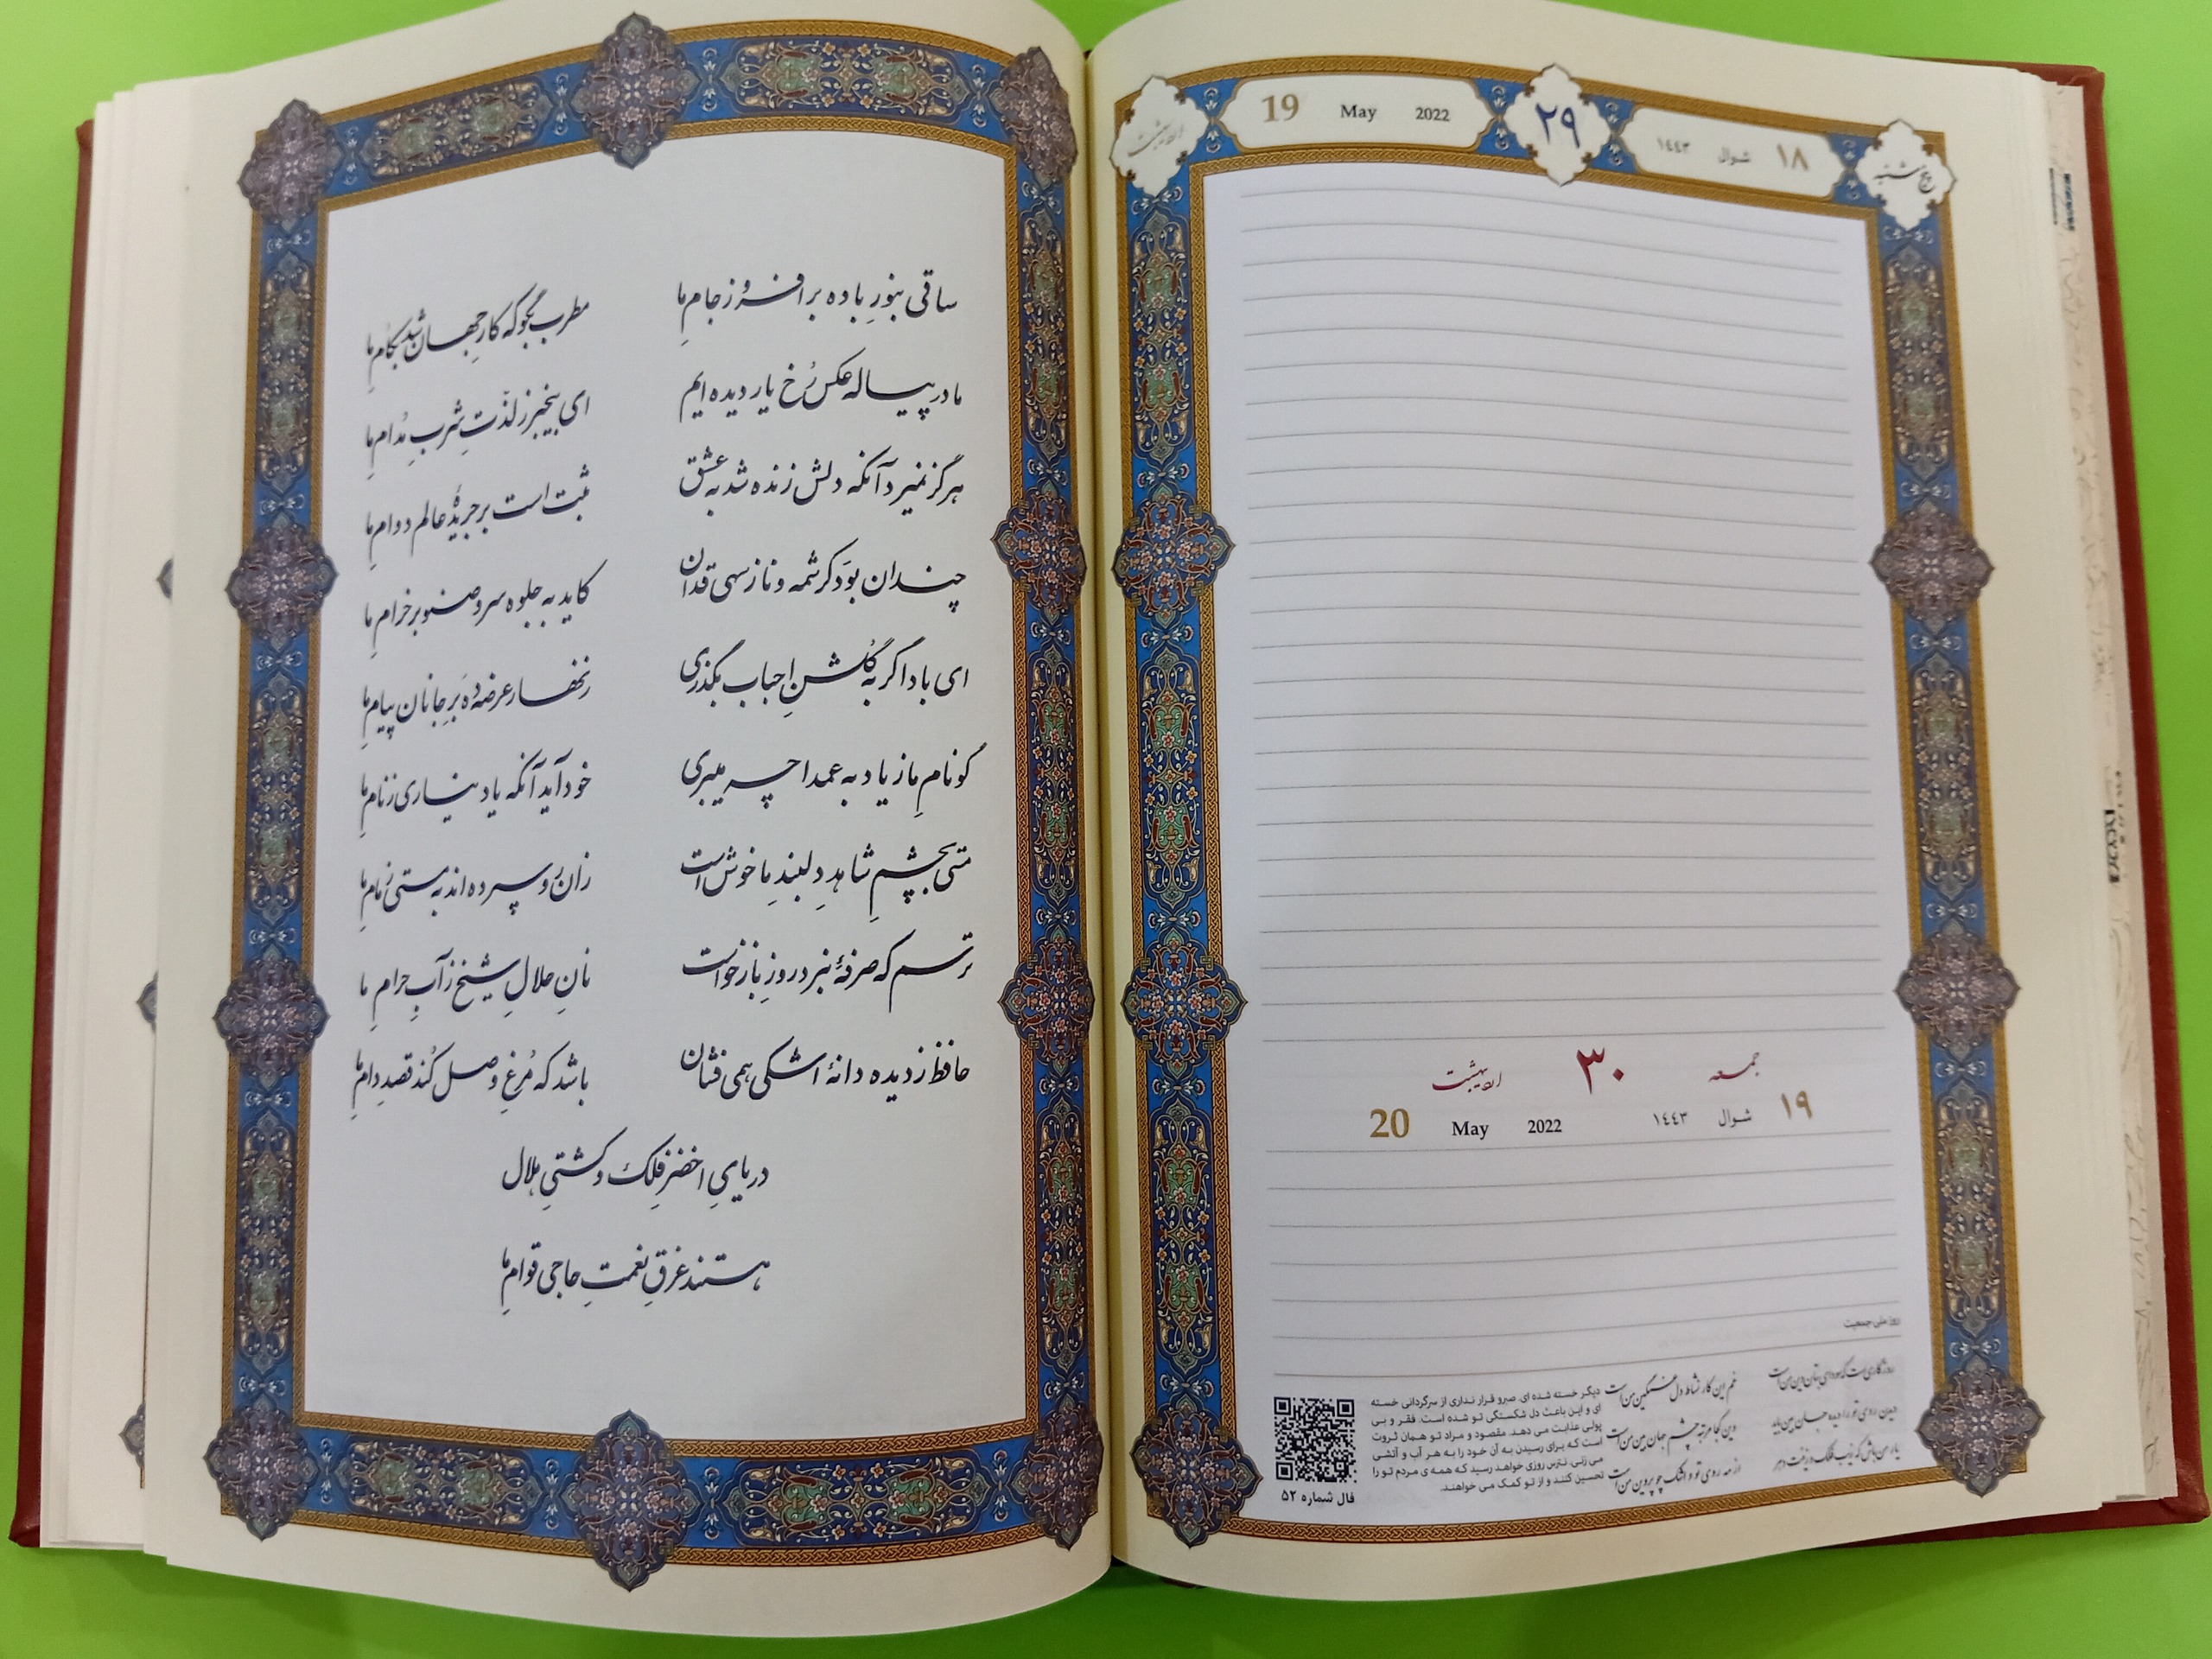 ساقی بنورِ باده برافروز جامِ ما مطرب بگو که کارِ جهان شد بکامِ ما
ما در پیاله عکس رُخ یار دیده ایم ای بیخبر ز لذّتِ شُربِ مُدامِ ما
هرگز نمیرد آنکه دلش زنده شد به عشق ثبت است بر جریدهٔ عالم دوامِ ما
چندان بوَد کرشمه و ناز سهی قدان کاید به جلوه سرو صنوبر خرامِ ما
ای باد اگر به گلشنِ احباب بگذری زنهار عرضه دِه بَرِ جانان پیامِ ما
گو نامِ ما ز یاد به عمدا چه میبری خود آید آنکه یاد نیاری ز نامِ ما
مستی بچشمِ شاهدِ دلبندِ ما خوش است زان رو سپرده اند به مستی زمامِ ما
ترسم که صرفهٔ نبرد روزِ بازخواست نانِ حلالِ شیخ ز آبِ حرامِ ما
حافظ ز دیده دانهٔ اشکی همی فشان باشد که مُرغِ وصل کُند قصدِ دامِ ما
دریایِ اخضرِ فلک و کشتیِ هلال
هستند غرقِ نعمتِ حاجی قوامِ ما
پنج شنبه ۱۸ شوال ١٤٤٣ ۲۹ 19 May 2022 اردیبهشت
جمعه ۳۰ اردیبهشت
۱۹ شوال ١٤٤٣ 20 May 2022
روز ملی جمعیت
روزگاری است که سودای بتان دین من است غم این کار نشاط دل غمگین من است
دیدن روی تو را دیده جان بین باید وین کجا مرتبه چشم جهان بین من است
یار من باش که زیب فلک و زینت دهر از مه روی تو و اشک چو پروین من است
دیگر خسته شده ای. صبرو قرار نداری از سرگردانی خسته
ای و این باعث دل شکستگی تو شده است. فقر و بی
پولی عذابت می دهد. مقصود و مراد تو همان ثروت
است که برای رسیدن به آن خود را به هر آب و آتشی
می زنی. نترس روزی خواهد رسید که همه ی مردم تو را
تحسین کنند و از تو کمک می خواهند.
فال شماره ۵۲